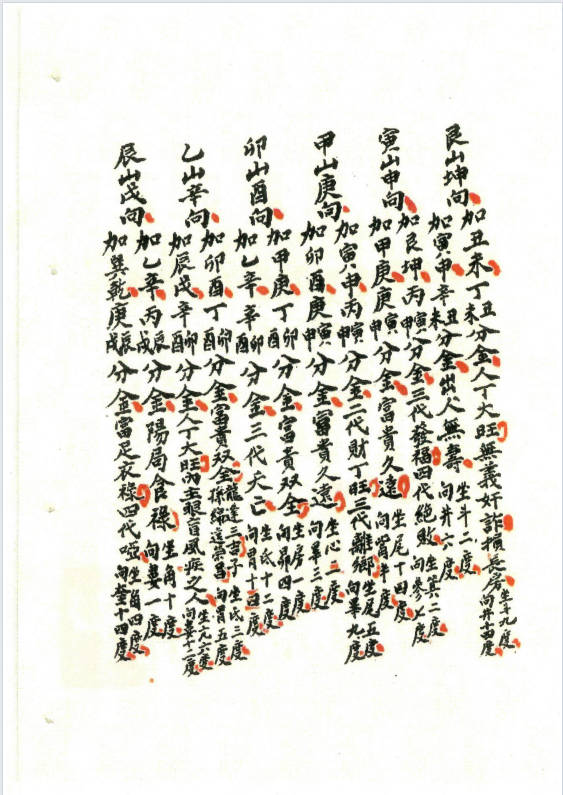 艮山坤向加丑未丁丑未分金人丁大旺無義奸詐損長房坐斗九度向井十四度
加寅申辛丑未分金出人無壽坐斗二度向井六度
寅山申向加艮坤丙寅申分金三代發福四代絕敗坐箕二度向參七度
加甲庚庚寅申分金富貴久遠坐尾十四度向觜半度
甲山庚向加寅申丙寅申分金二代財丁旺三代離鄉坐尾五度向畢九度
加卯酉庚寅申分金富貴久遠坐心二度向畢三度
卯山酉向加甲庚丁卯酉分金富貴双全坐房一度向昴四度
加乙辛辛卯酉分金三代大亡坐氐十二度向胃十五度
乙山辛向加卯酉丁卯酉分金富貴双全龍逢三吉子孫綿遠榮昌坐氐三度向胃五度
加辰戌辛卯酉分金人丁大旺內主眼盲風疾之人坐亢六度向婁十二度
辰山戌向加乙辛丙辰戌分金陽局食祿坐角十度向婁一度
加巽乾庚辰戌分金富足衣祿四代啞坐角四度向奎十四度